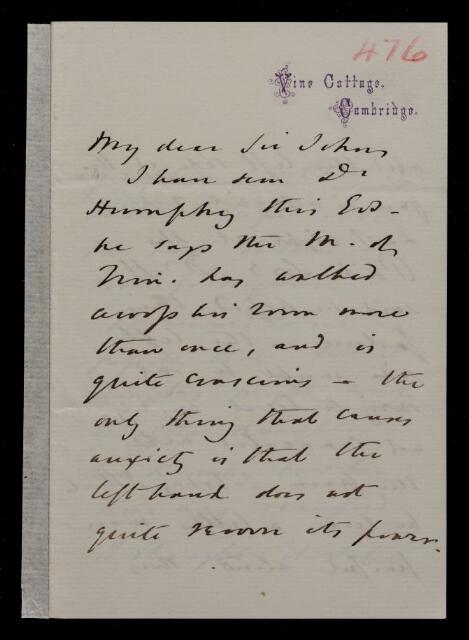 476
Vine Cottage,
Cambridge.
My dear Sir John,
I have seen Dr
Humphry this Eve -
he says the M. of
Trin. has walked
across his room more
than once, and is
quite conscious - the
only thing that causes
anxiety is that the
left hand does not
quite recover its power.